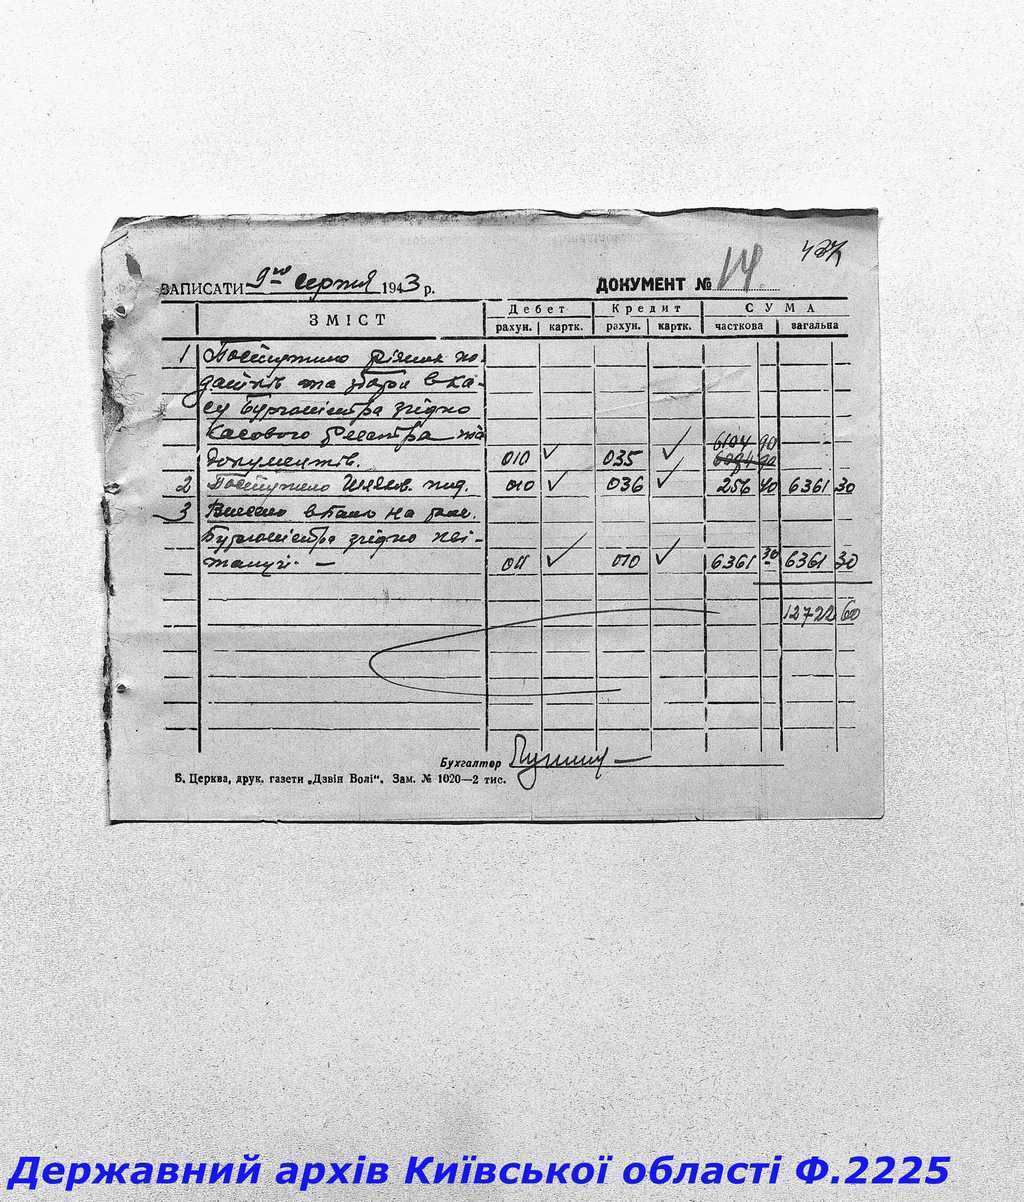 427
ЗАПИСАТИ 9го серпня 1943 р. ДОКУМЕНТ № 14.
ЗМІСТ Дебет Кредит СУМА
рахун. картк. рахун. картк. часткова загальна
1 Поступило різних по-
датків та зборів в ка-
су Бургомістра згідно
касового реєстра та 6104 90
документів. 010 035 6094 90
2 Поступило под. 010 036 256 40 6361 30
3 Внесено в банк на рах.
Бургомістра згідно кві-
танції. — 011 010 6361 30 6361 30
12722 60
Бухгалтер
Б. Церква, друк. газети „Дзвін Волі“. Зам. № 1020—2 тис.
Державний архів Київської області Ф.2225